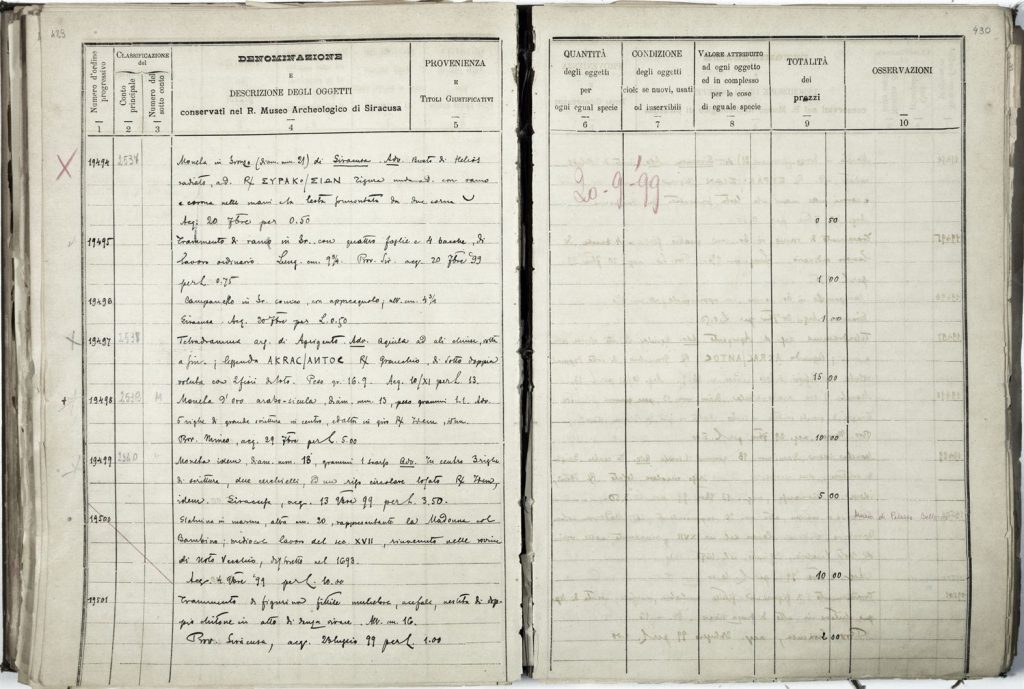 429
Numero d'ordine progressivo
CLASSIFICAZIONE del
Conto principale
Numero del sotto conto
DENOMINAZIONE
E
DESCRIZIONE DEGLI OGGETTI
conservati nel R. Museo Archeologico di Siracusa
PROVENIENZA
E
TITOLI GIUSTIFICATIVI
1 2 3 4 5
19494 2537 Moneta in bronzo (diam. mm. 21) di Siracusa. Adv. Busto di Helios
radiato, ad. R/ ΣΥΡΑΚΟ/ΣΙΩΝ Figura nuda ad. con ramo
e corna nelle mani e la testa sormontata da due corna
Acq. 20 7bre per 0.50
19495 Frammento di ramo in br. con quattro foglie e 4 bacche, di
lavoro ordinario. Lung. cm. Prov. Sir. acq. 20 7bre 99
per L. 0.75
19496 Campanello in br. conico, con appiccagnolo; alt. cm.
Siracusa. Acq. 20 7bre per L. 0.50
19497 2538 Tetradramma arg. di Agrigento. Adv. aquila ad ali chiuse, volta
a sin.; leggenda AKRAC/ANTOC R/ Granchio, di sotto doppia
voluta con 2 fiori di loto. Peso gr. 16.9. Acq. 10/XI per L. 13.
19498 2539 Moneta d'oro arabo-sicula, diam. mm. 13, peso grammi 1.1. Adv.
5 righe di grande scrittura in centro, in giro R/ Idem, idem.
Prov. Mineo, acq. 29 7bre per L. 5.00
19499 2540 Moneta idem, diam. mm. 13, grammi 1 scarso Adv. In centro 3 righe
di scrittura, due cerchielli, ed un rigo circolare R/ Idem,
idem. Siracusa, acq. 13 9bre 99 per L. 3.50.
19500 Statuina in marmo, alta cm. 20, rappresentante la Madonna col
Bambino; mediocre lavoro del sec XVII, rinvenuto nelle rovine
di Noto Vecchio, distrutto nel 1693.
Acq. 4 9bre '99 per L. 10.00
19501 Frammento di figurina fittile muliebre, acefala, vestita di dop-
pio chitone in atto di Alt. cm. 16.
Prov. Siracusa, acq. 23 luglio 99 per L. 1.00
430
QUANTITÀ
degli oggetti
per
ogni egual specie
CONDIZIONE
degli oggetti
cioè: se nuovi, usati
od inservibili
VALORE ATTRIBUITO
ad ogni oggetto
ed in complesso
per le cose
di eguale specie
TOTALITÀ
dei
prezzi
OSSERVAZIONI
6 7 8 9 10
20-9-'99
0 50
1 00
1 00
15 00
10 00
5 00
10 00
2 00